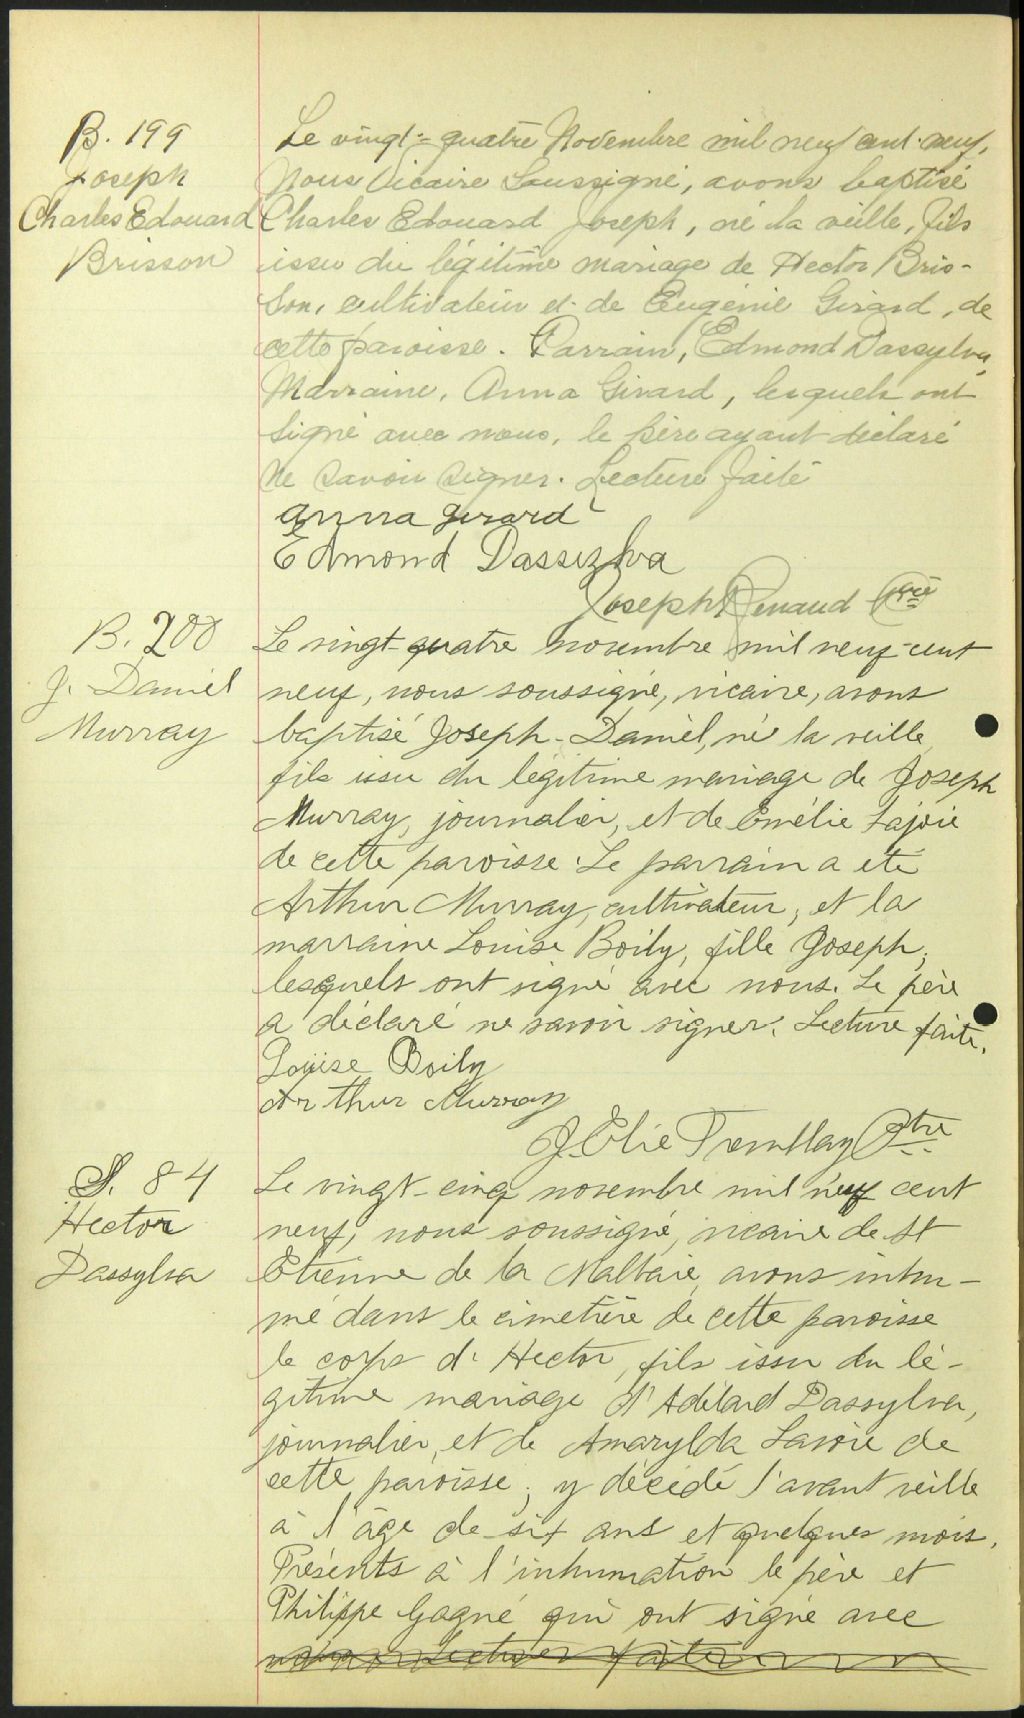 B. 199
Joseph
Charles Edouard
Brisson
Le vingt-quatre Novembre mil neuf cent neuf,
Nous Vicaire Soussigné, avons baptisé
Charles Edouard Joseph, né la veille, fils
issu du légitime mariage de Hector Bris-
son, cultivateur et de Eugénie Girard, de
cette paroisse. Parrain, Edmond Dassylva,
Marraine, Anna Girard, lesquels ont
signé avec nous, le père ayant déclaré
ne savoir signer. Lecture faite
Anna Girard
Edmond Dassylva
Joseph Renaud Ptre
B. 200
J. Daniel
Murray
Le vingt-quatre novembre mil neuf-cent
neuf, nous soussigné, vicaire, avons
baptisé Joseph-Daniel, né la veille,
fils issu du légitime mariage de Joseph
Murray, journalier, et de Emélie Lajoie
de cette paroisse. Le parrain a été
Arthur Murray, cultivateur, et la
marraine Louise Boily, fille Joseph,
lesquels ont signé avec nous. Le père
a déclaré ne savoir signer. Lecture faite.
Louise Boily
Arthur Murray
J. Elie Tremblay Ptre
S. 84
Hector
Dassylva
Le vingt-cinq novembre mil neuf cent
neuf, nous soussigné, vicaire de St
Etienne de la Malbaie, avons inhu-
mé dans le cimetière de cette paroisse
le corps d' Hector, fils issu du lé-
gitime mariage d'Adélard Dassylva,
journalier, et de Amarylda Savoie de
cette paroisse, y décédé l'avant veille
à l'âge de six ans et quelques mois.
Présents à l'inhumation le père et
Philippe Gagné qui ont signé avec
nous Lecture faite